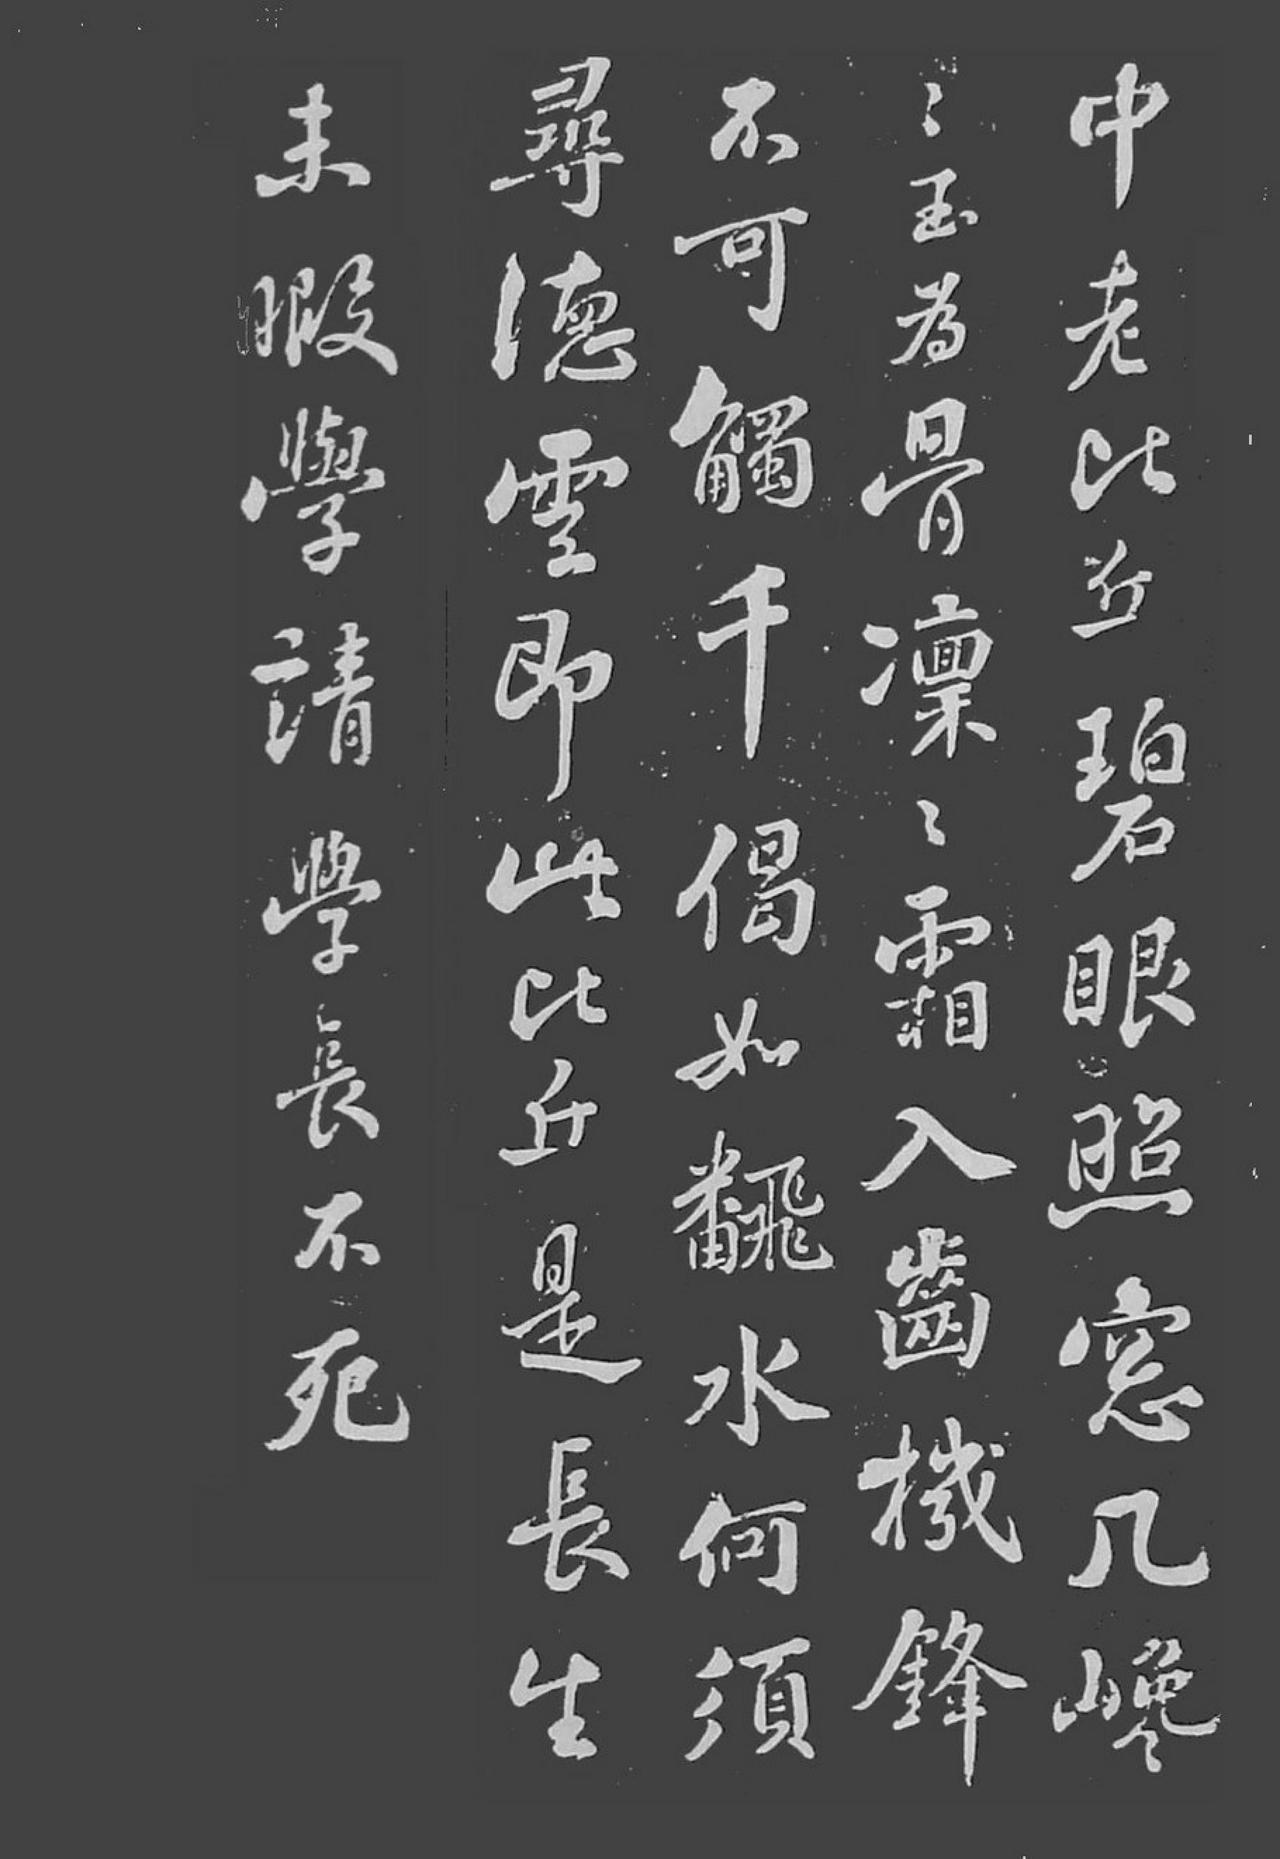 中老比丘碧眼照窓几巉
〻玉為骨凜〻霜入齒機鋒
不可觸千偈如飜水何須
尋德雲即此比丘是長生
未暇學請學長不死